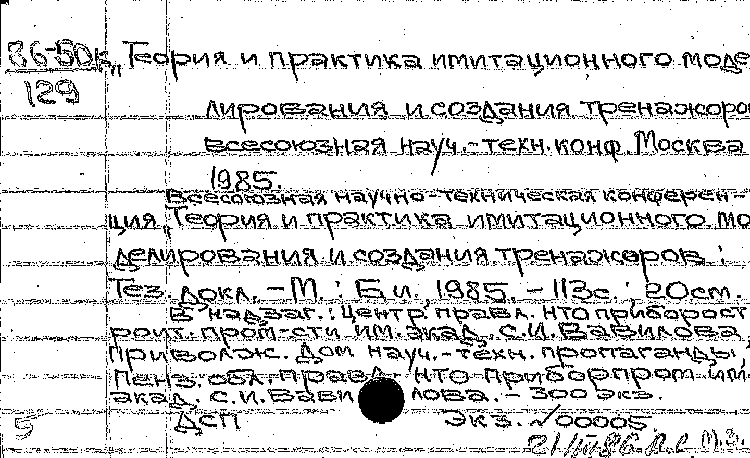 86-50к „Теория и практика имитационного моде
129
лирования и создания тренажоро
всесоюзная науч.-техн.конф Москва
1985.
Всесоюзная научно-техническая конферен-
ция „Теория и практика имитационного мо
делирования и создания тренажеров :
Тез. докл. - М. : Б.и., 1985. - 113с. ; 20см.
В надзаг.: Центр. правл. НТО приборост
роит. пром-сти им. акад. С.И. Вавилова,
Приволж. Дом науч.-техн. пропаганды,
Пенз. обл. правл. НТО приборпром им.
акад. С.И. Вавилова. - 300 экз.
5 ДСП Экз. №00005.